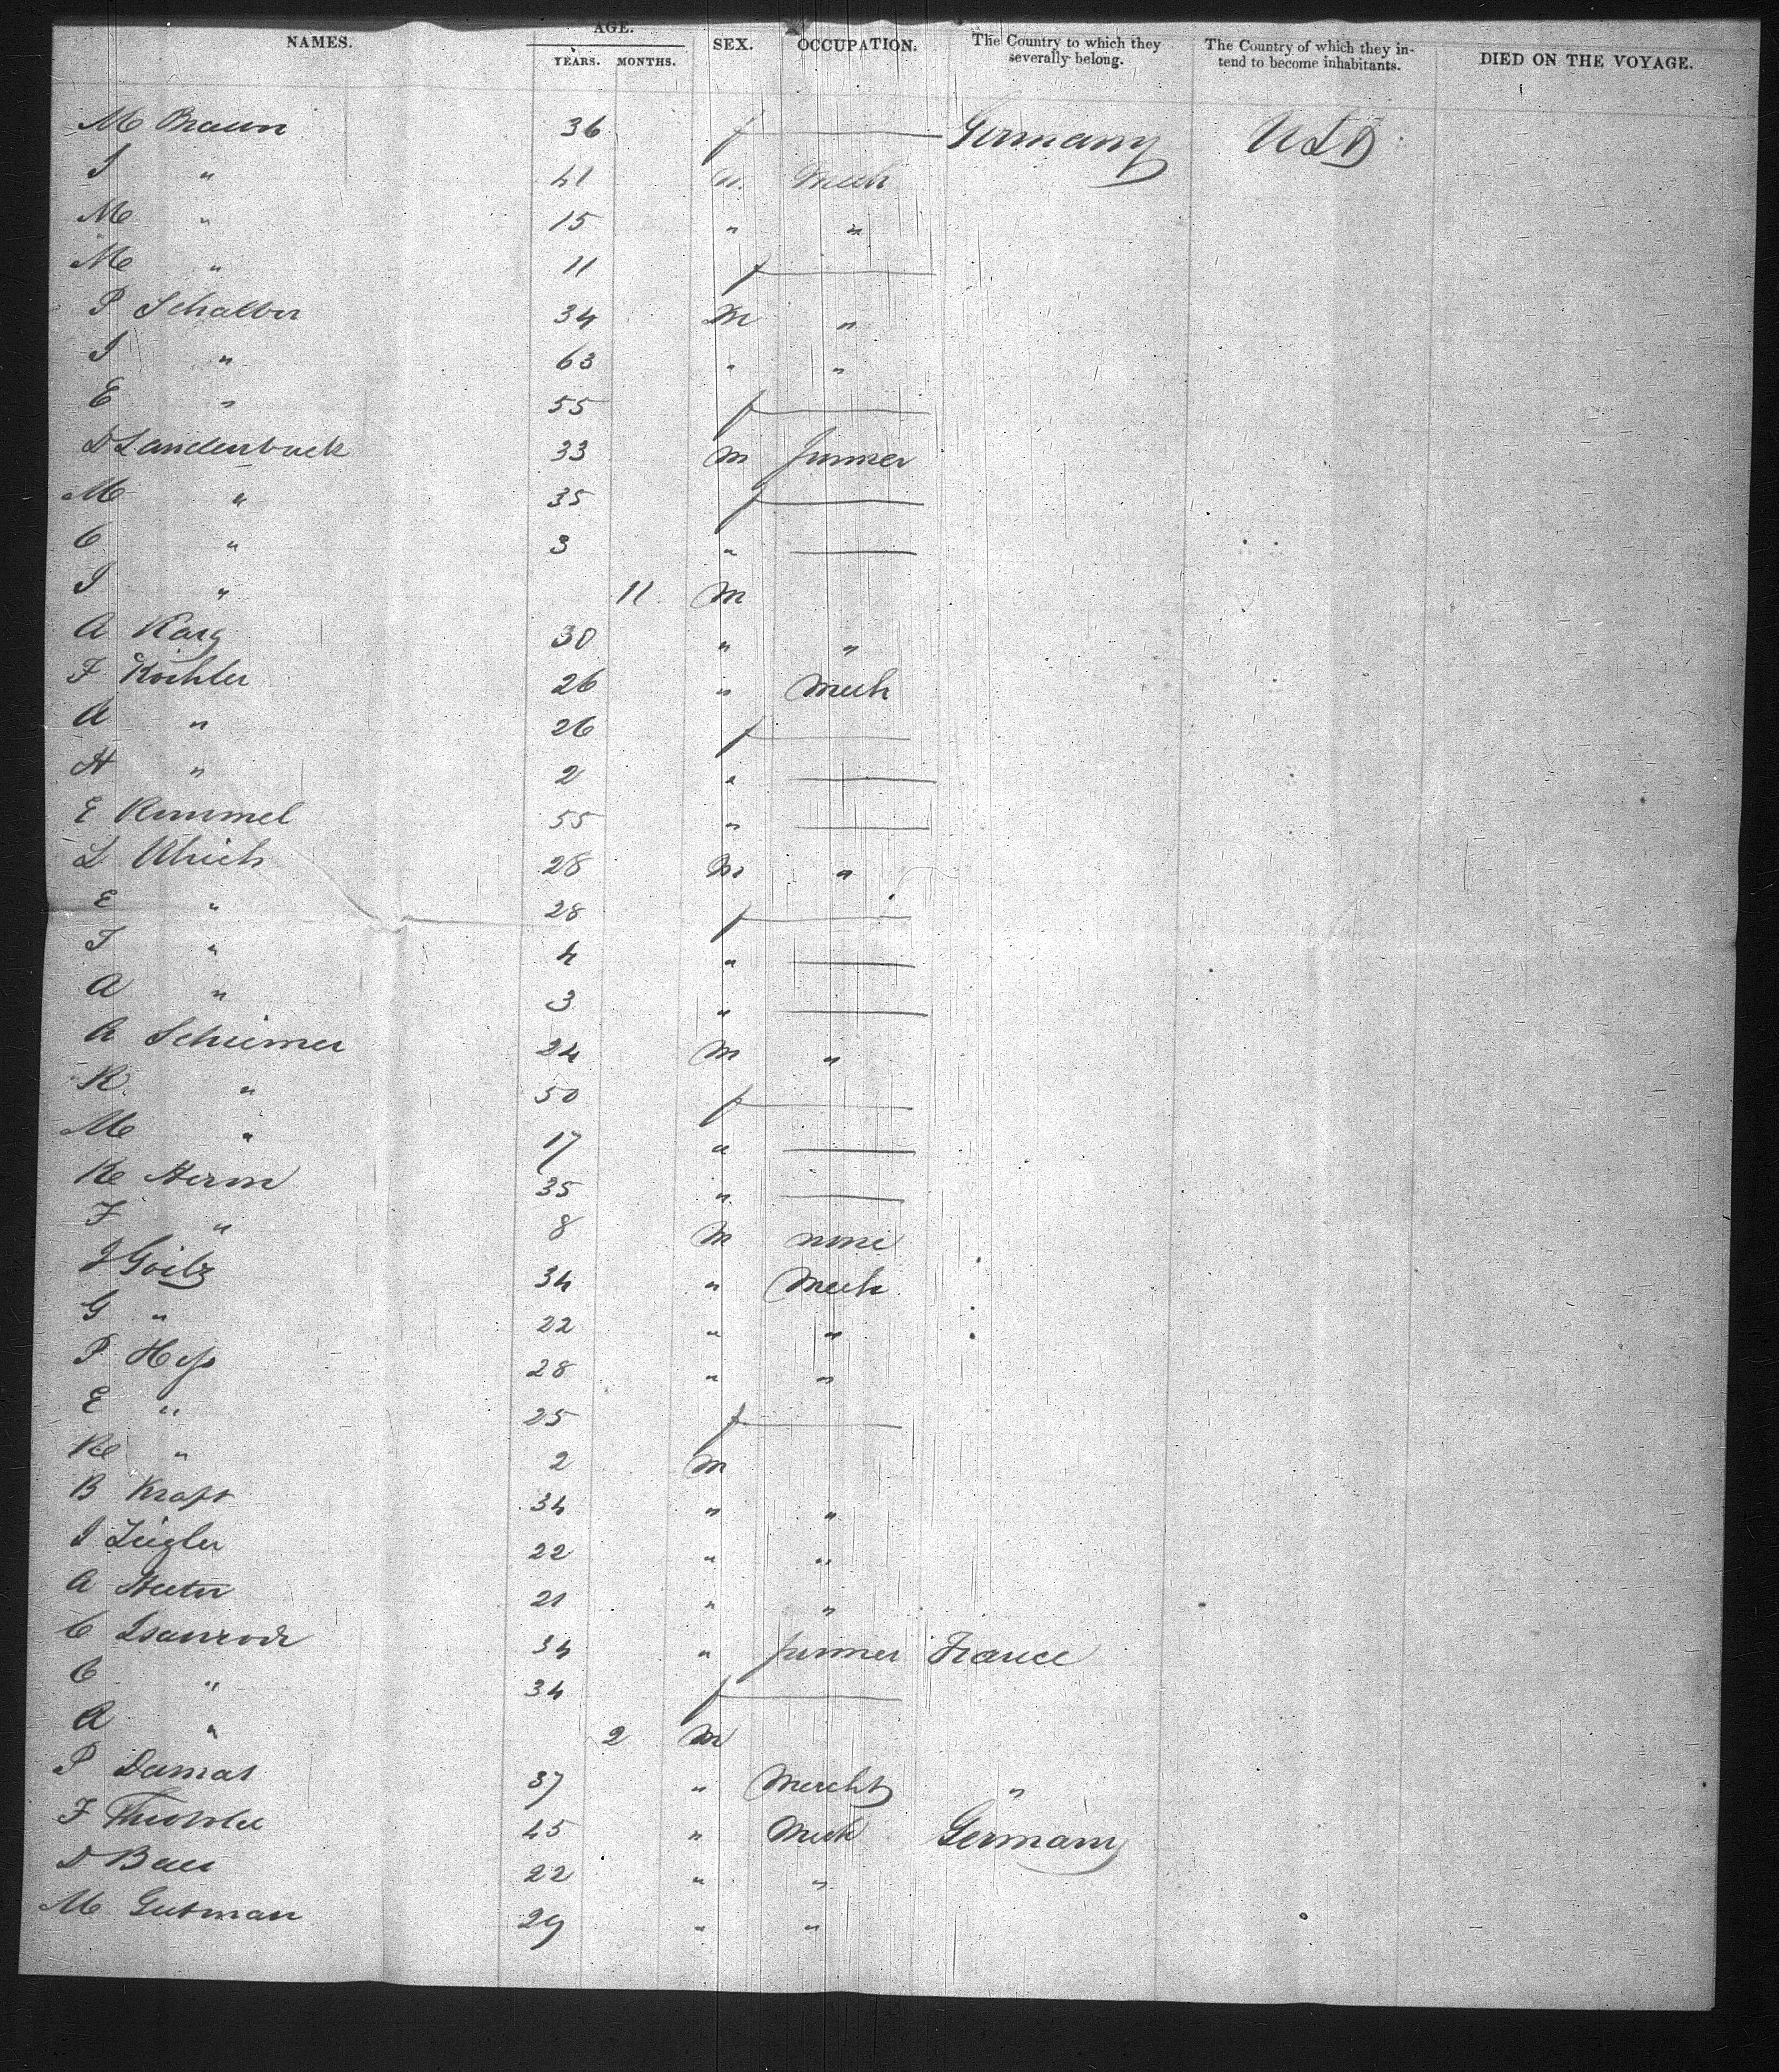 NAMES. AGE. SEX. OCCUPATION. The Country to which they severally belong. The Country of which they intend to become inhabitants. DIED ON THE VOYAGE.
YEARS. MONTHS.
M Braun 36 f — Germany USA
J " 41 m Mech
M " 15 " "
M " 11 f —
P Schalber 34 M "
J " 63 " "
E " 55 f —
D Landenback 33 m farmer
M " 35 f —
C " 3 " —
J " 11 M
A Karg 30 " "
F Köhler 26 " Mech
A " 26 f —
H " 2 " —
E Rummel 55 " —
L Ulrich 28 M "
E " 28 f —
J " 4 " —
A " 3 " —
A Schirmer 24 M "
R " 50 f —
M " 17 " —
K Herm 35 " —
F " 8 M none
J Goilz 34 " Mech
G " 22 " "
P Hess 28 " "
E " 25 f —
K " 2 M
B Kraft 34 " "
J Zeigler 22 " "
A 21 " "
C 34 " farmer France
C " 34 f —
A " 2 M
P Damas 37 " Mercht "
F 45 " Mech Germany
D Baer 22 " "
M Gutman 29 " "